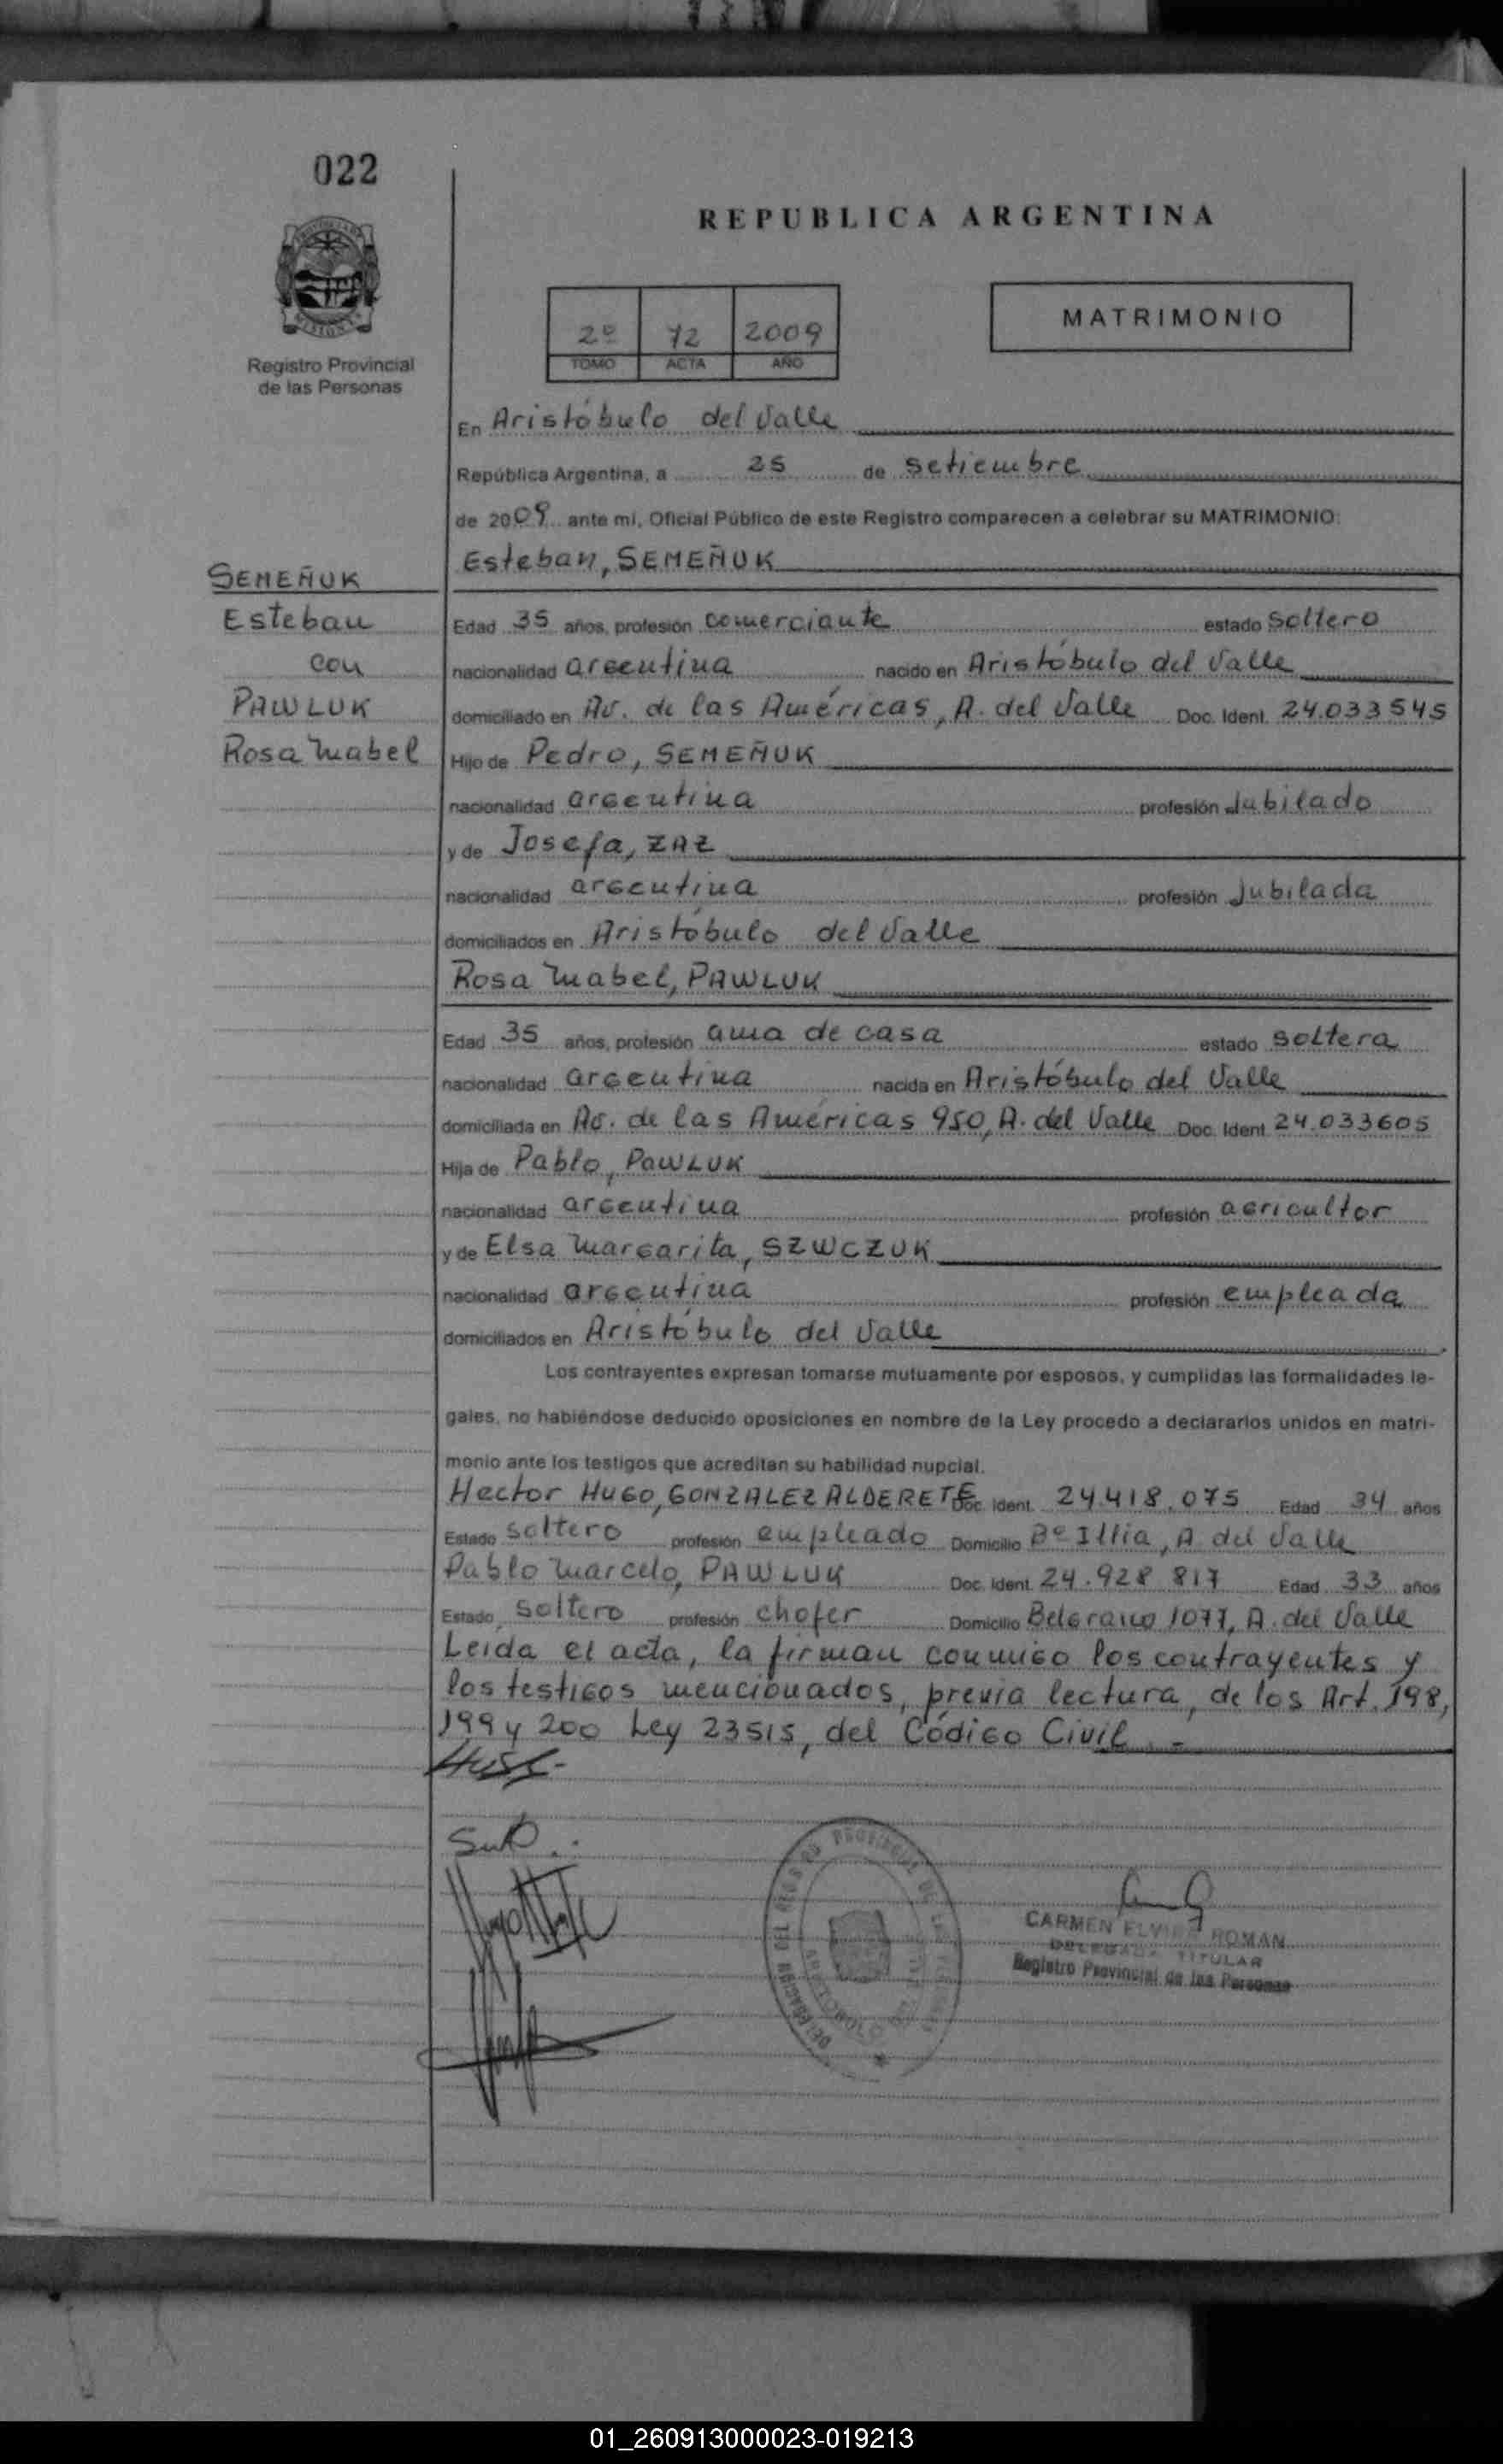 022
REPUBLICA ARGENTINA
MATRIMONIO
2º 72 2009
TOMO ACTA AÑO
Registro Provincial
de las Personas
En Aristóbulo del Valle
República Argentina, a 25 de setiembre
de 2009 ante mi, Oficial Público de este Registro comparecen a celebrar su MATRIMONIO:
Esteban, SEMEÑUK
SEMEÑUK
Esteban
con
PAWLUK
Rosa Mabel
Edad 35 años, profesión comerciante estado soltero
nacionalidad argentina nacido en Aristóbulo del Valle
domiciliado en Av. de las Américas, A. del Valle Doc. Ident. 24.033545
Hijo de Pedro, SEMEÑUK
nacionalidad argentina profesión Jubilado
y de Josefa, ZAZ
nacionalidad argentina profesión Jubilada
domiciliados en Aristóbulo del Valle
Rosa Mabel, PAWLUK
Edad 35 años, profesión ama de casa estado soltera
nacionalidad argentina nacida en Aristóbulo del Valle
domiciliada en Av. de las Américas 950, A. del Valle Doc. Ident 24.033605
Hija de Pablo, PAWLUK
nacionalidad argentina profesión agricultor
y de Elsa Margarita, SZWCZUK
nacionalidad argentina profesión empleada
domiciliados en Aristóbulo del Valle
Los contrayentes expresan tomarse mutuamente por esposos, y cumplidas las formalidades le-
gales, no habiéndose deducido oposiciones en nombre de la Ley procedo a declararlos unidos en matri-
monio ante los testigos que acreditan su habilidad nupcial.
Hector HUGO, GONZALEZ ALDERETE Doc. Ident. 24.418.075 Edad 34 años
Estado soltero profesión empleado Domicilio Bº Illia, A. del Valle
Pablo Marcelo, PAWLUK Doc. Ident. 24.928 817 Edad 33 años
Estado soltero profesión chofer Domicilio Belgrano 1077, A. del Valle
Leida el acta, la firman conmigo los contrayentes y
los testigos mencionados, previa lectura, de los Art. 198,
199 y 200 Ley 23515, del Código Civil.-
CARMEN ELVIRA ROMAN
DELEGADA TITULAR
Registro Provincial de las Personas
01_260913000023-019213